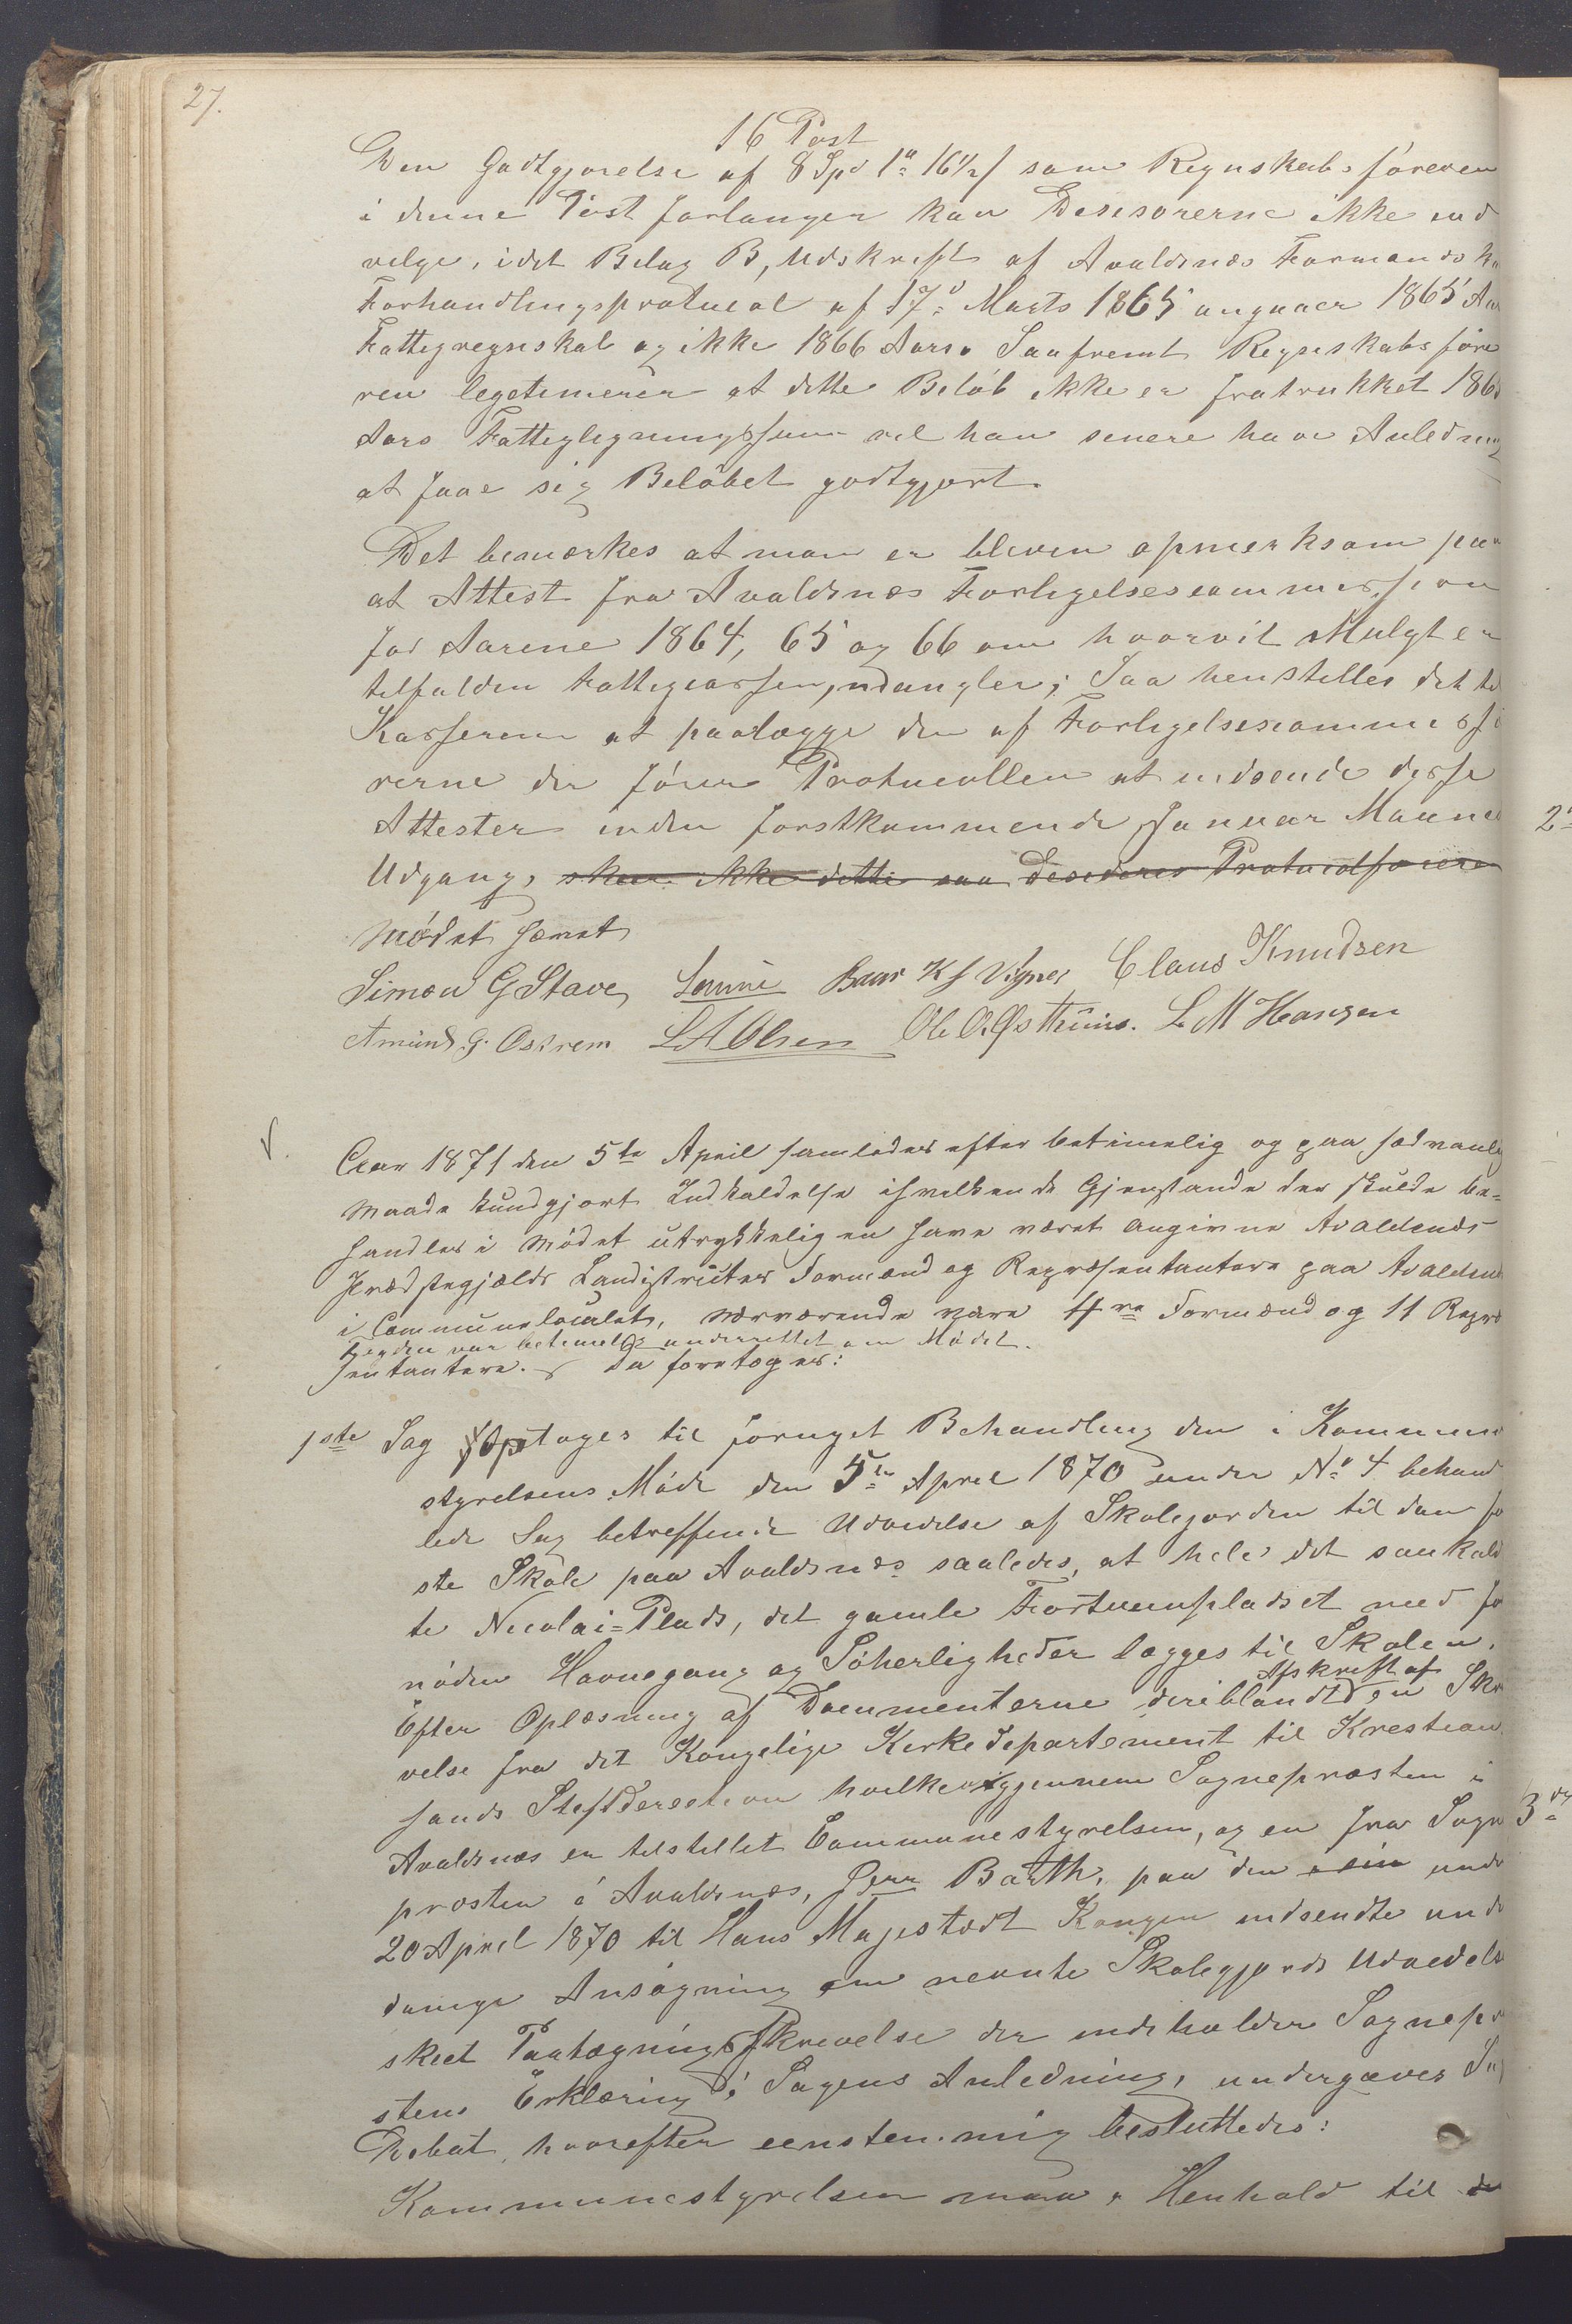 27.
16 Post
Den Godtgjørelse af 8 Spd 1 " 16 1/2 s som Regnskabsføreren
i denne Post forlanger kan Desisorerne ikke ind
vilge, idet Bilag B, Udskrift af Avaldsnæs Formandsk
Forhandlingsprotucol af 17d Marts 1865 angaaer 1865 Aar
Fattigregnskab og ikke 1866 Aars. Saafremt Regnskabsføre
ren legetimerer at dette Beløb ikke er fratrukket 186
Aars Fattigligningssum vil han senere have Anledning
at faae sig Beløbet godtgjort.
Det bemærkes at man er bleven opmerksom paa
at Attest fra Avaldsnæs Forligelsescommission
for Aarene 1864, 65 og 66 om hvorvit Mulgter
tilfalden Fattigcassen, mangler; Saa henstilles det til
Kasseren at paalægge den af Forligelsescommissi
rerne der fører Protucollen at indsende disse
Attester inden førstkommende Januar Maaned
Udgang, skeer ikke dette saa Desideres Protucolfører
Mødet hævet
Simon G Stave Lønne Baar K J Vignes Claus Knudsen
Amund G. Ostrem L A Olsen Ole O. Østhuus. L M Hansen
Aar 1871 den 5te April samledes efter betimelig og paa sædvanlig
Maade kundgjort Indkaldelse ihvilken de Gjenstande der skulde be=
handles i Mødet utrykkeligen have været angivne Avaldsnæs
Præstegjælds Landistricter Formænd og Repræsentantere paa Avaldsnæs
i Communelocalet, Nærværende vare 4re Formænd og 11 Repræ
Fogden var betimelig underrettet om Mødet.
sentantere. Da foretoges:
1ste Sag Optoges til fornyet Behandling den i Kommune
styrelsens Møde den 5te April 1870 under No 4 behand
lede Sag betreffende Udvidelse af Skolejorden til den fa
ste Skole paa Avaldsnæs saaledes, at hele det saakald
te Nicolai=Plads, det gamle Fortuunpladset med for
nøden Havnegang og Søherligheder lægges til Skolen.
Afskrift af
Efter Oplæsning af Documenterne deriblandt en Skri
velse fra det Kongelige Kirkedepartement til Kristian
sands Stiftdirection hvilken gjennem Sognepræsten i
Avaldsnæs er tilstillet Communestyrelsen, og en fra Sogne
præsten i Avaldsnæs, Herr Barth, paa den under
20 April 1870 til Hans Majestædt Kongen indsendte und
danige Ansøgning om nevnte Skolegjords Udvidelse
skeet Paategningsskrivelse der indeholder Sognepr
stens Erklæring i Sagens Anledning, undergaves Sag
Debat, hvorefter eenstemmig besluttedes:
Kommunestyrelsen maa i Henhold til de
2
3